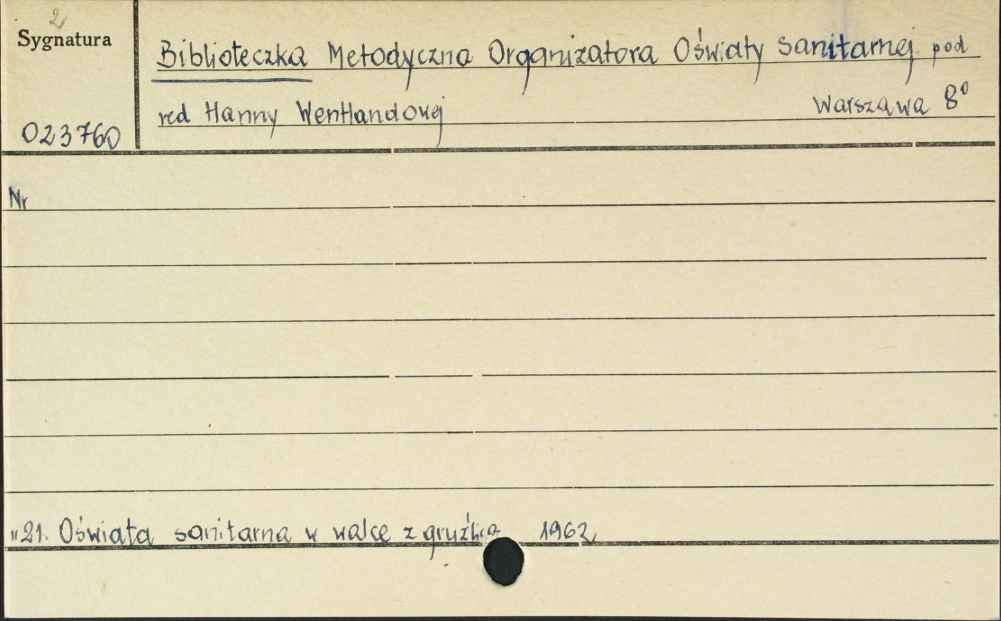 2
Sygnatura
Biblioteczka Metodyczna Organizatora Oświaty Sanitarnej pod
red Hanny Wentlandowej Warszawa 8°
023760
Nr
"21. Oświata sanitarna w walce z gruźlicą 1962